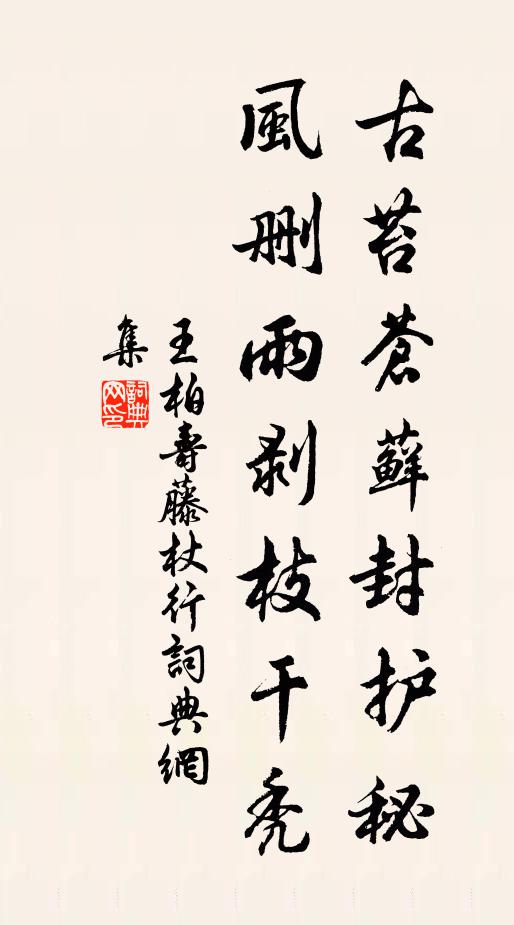 古苔蒼蘚封护秘
風刪雨剥枝干秃
王柏壽藤杖行詞典網
集
詞典网印